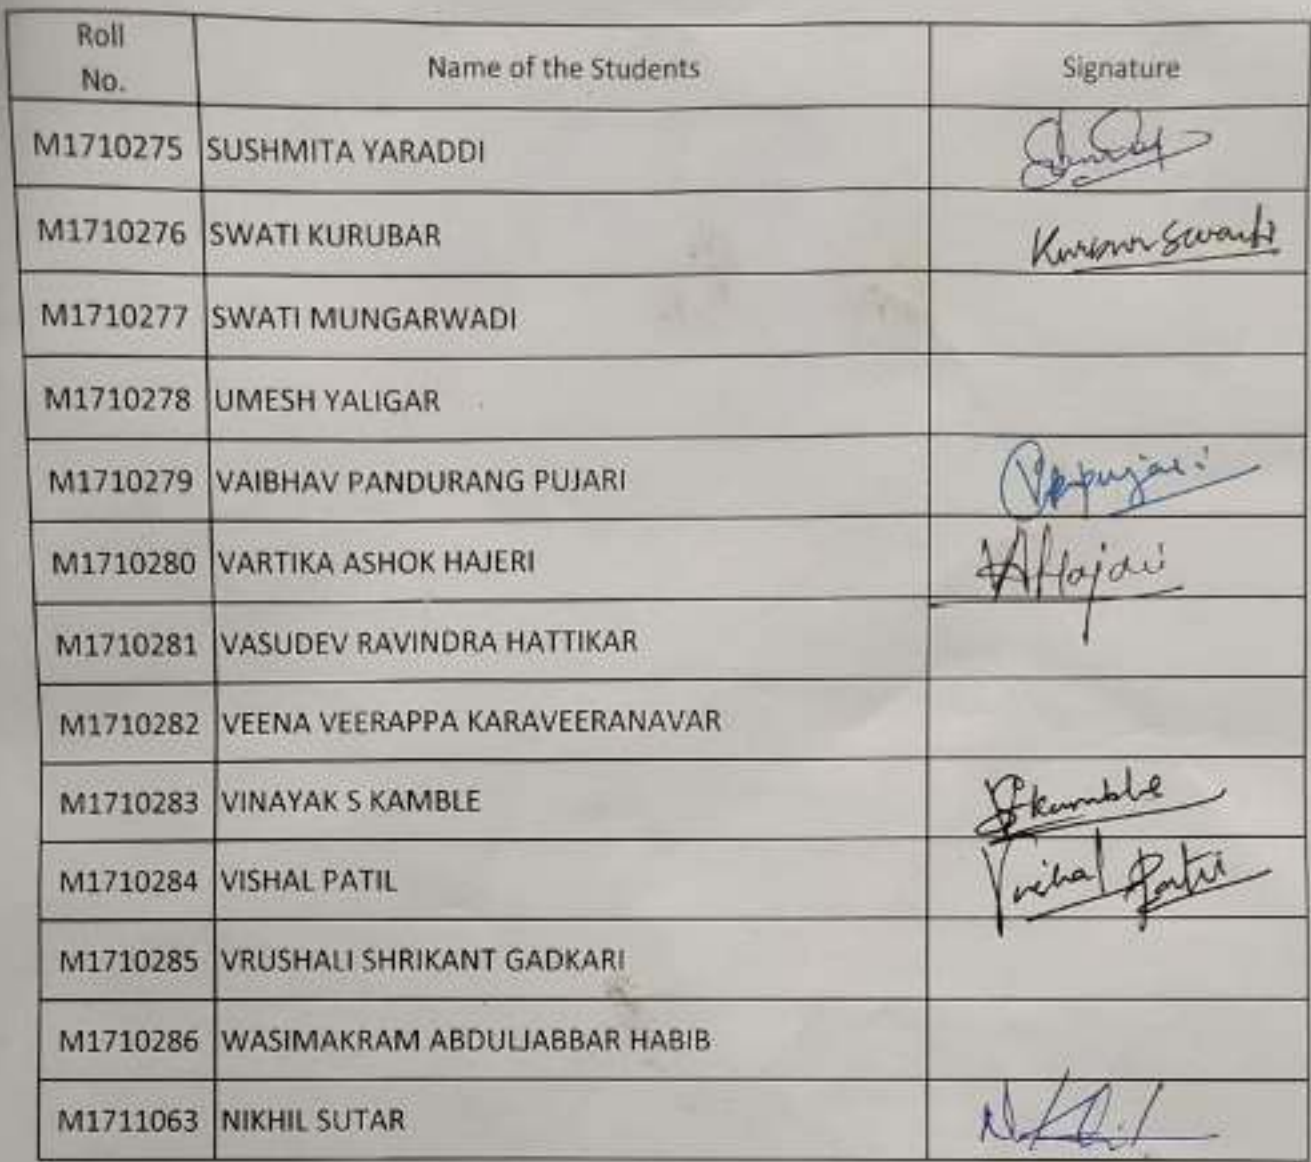 Roll No. Name of the Students Signature
M1710275 SUSHMITA YARADDI
M1710276 SWATI KURUBAR
M1710277 SWATI MUNGARWADI
M1710278 UMESH YALIGAR
M1710279 VAIBHAV PANDURANG PUJARI
M1710280 VARTIKA ASHOK HAJERI
M1710281 VASUDEV RAVINDRA HATTIKAR
M1710282 VEENA VEERAPPA KARAVEERANAVAR
M1710283 VINAYAK S KAMBLE
M1710284 VISHAL PATIL
M1710285 VRUSHALI SHRIKANT GADKARI
M1710286 WASIMAKRAM ABDULJABBAR HABIB
M1711063 NIKHIL SUTAR